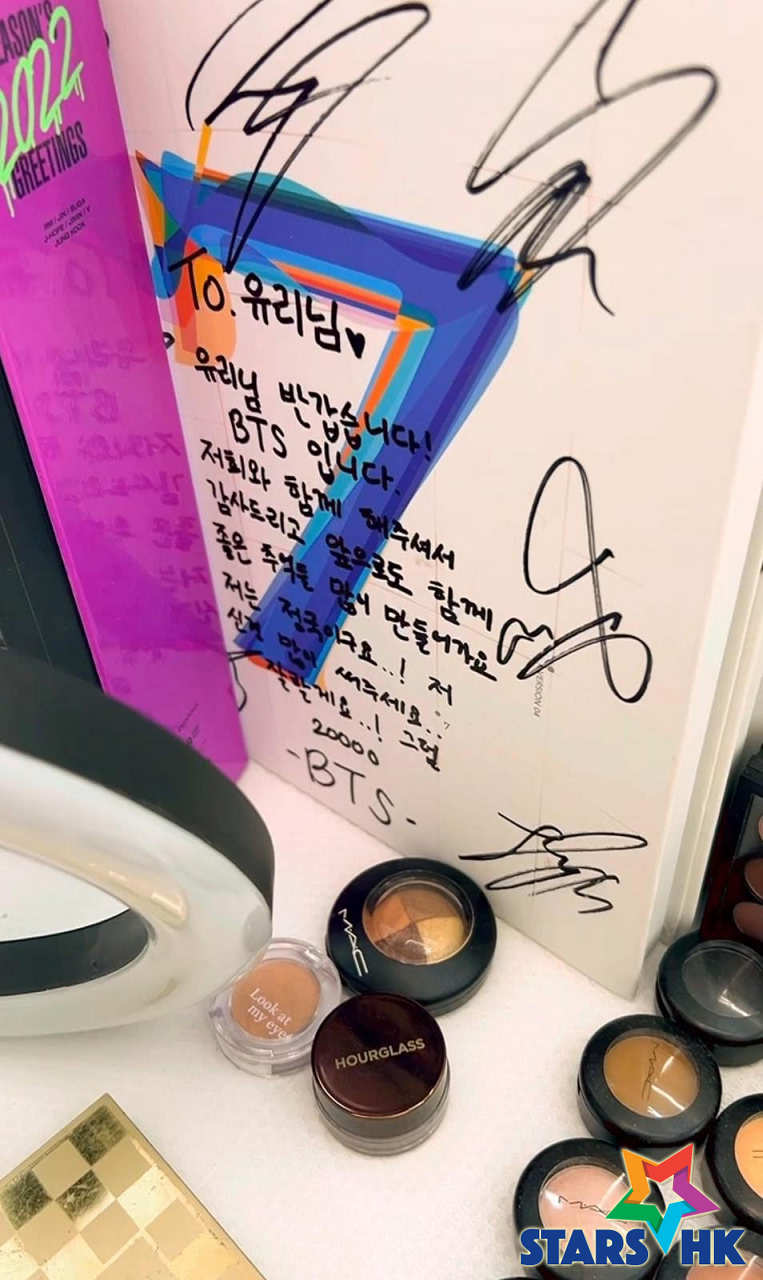 SEASON'S
2022
GREETINGS
RM / JIN / SUGA
J-HOPE / JIMIN / V
JUNG KOOK
To. 유리님♥
유리님 반갑습니다!
BTS 입니다.
저희와 함께 해주셔서
감사드리고 앞으로도 함께
좋은 추억들 많이 만들어가요
저는 정국이구요..! 저
신경 많이 써주세요..
잘할게요..! 그럼
20000
-BTS-
VERSION 04
MAC
Look at
my eyes
HOURGLASS
MAC
MAC
STARS HK